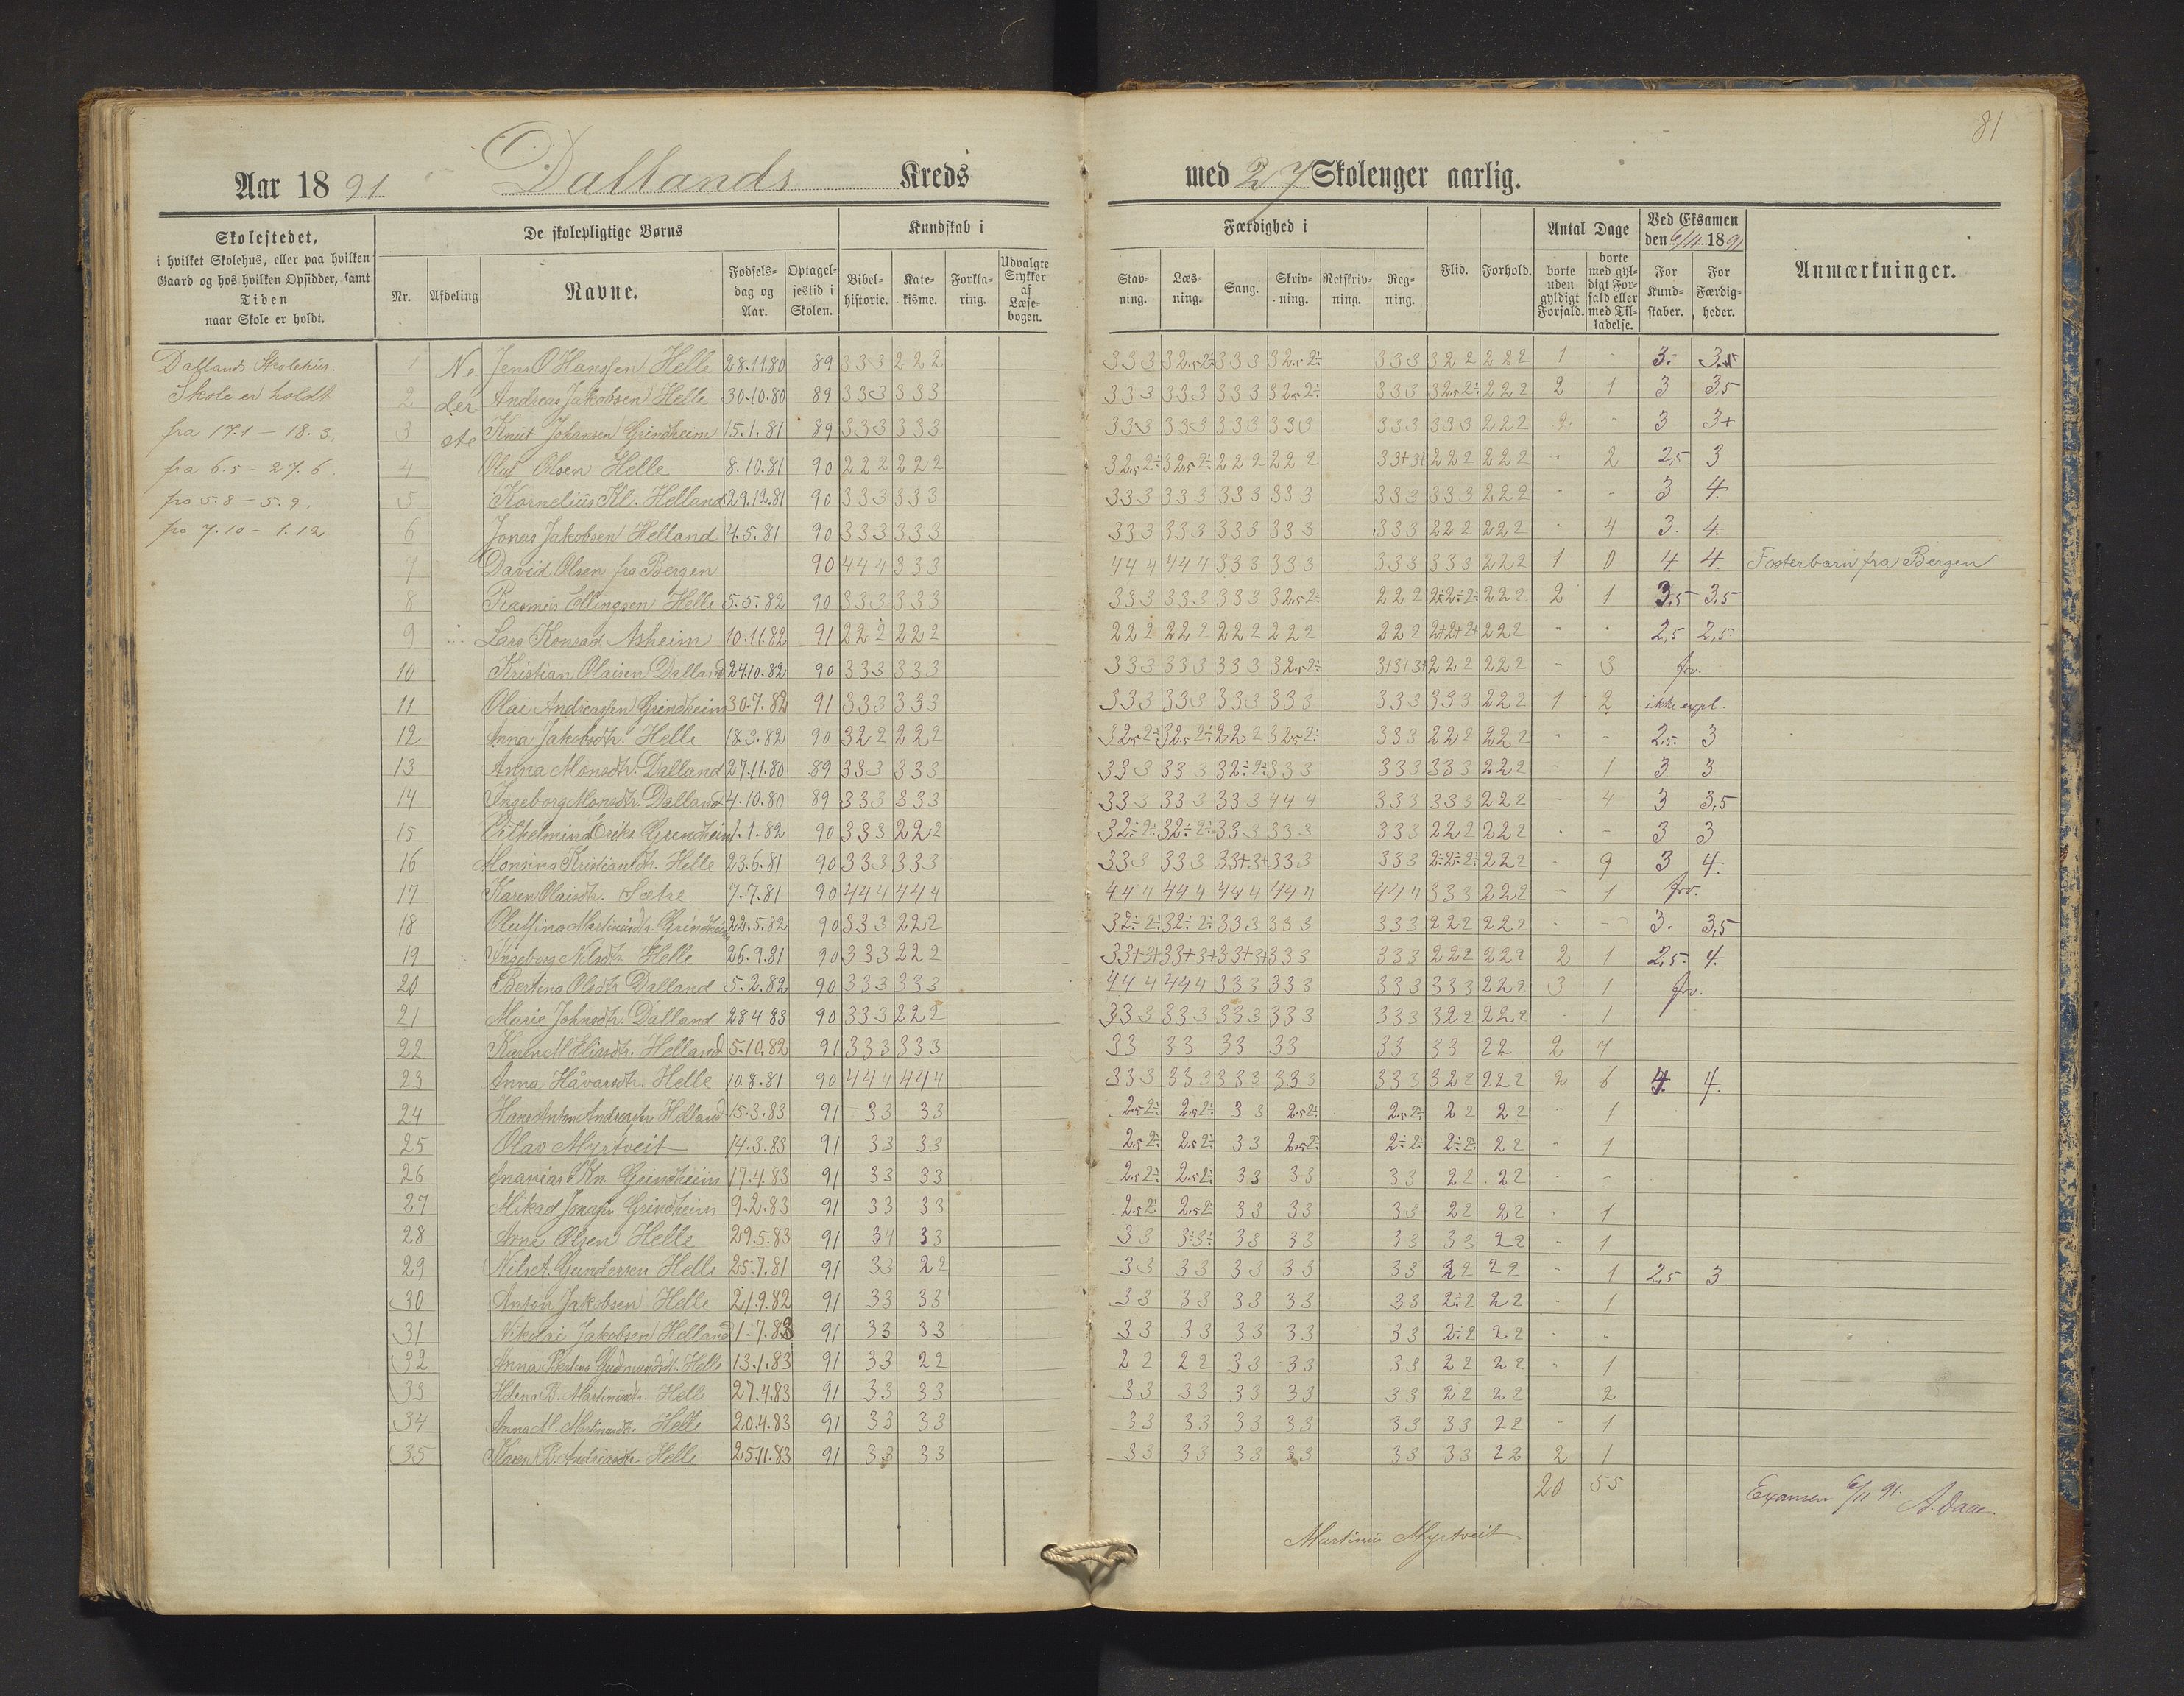 81
Aar 1891 Dallands Kreds med 27 Skoleuger aarlig.
Skolestedet, i hvilket Skolehus, eller paa hvilken Gaard og hos hvilken Opsidder, samt Tiden naar Skole er holdt.
De skolepligtige Børns
Nr. Afdeling Navne. Fødselsdag og Aar. Optagelsestid i Skolen.
Kundskab i
Bibelhistorie. Katekisme. Forklaring. Udvalgte Stykker af Læsebogen.
Færdighed i
Stavning. Læsning. Sang. Skrivning. Retskrivning. Regning. Flid. Forhold.
Antal Dage
borte uden gyldigt Forfald. borte med gyldigt Forfald eller med Tilladelse.
Ved Eksamen den 6/11 1891
For Kundskaber. For Færdigheder.
Anmærkninger.
Dallands Skolehus.
Skole er holdt
fra 17.1 – 18.3.
fra 6.5 – 27.6.
fra 5.8 – 5.9.
fra 7.10 – 1.12
Ne
der
ste
1 Jens O Hanssen Helle 28.11.80 89 333 222 333 32.52÷ 333 32.52÷ 333 322 222 1 - 3. 3.5
2 Andreas Jakobsen Helle 30.10.80 89 333 333 333 333 333 32.52÷ 333 32.52÷ 222 2 1 3 3,5
3 Knut Johansen Grindheim 15.1.81 89 333 333 333 333 333 333 333 333 222 2 - 3 3+
4 Oluf Olsen Helle 8.10.81 90 222 222 32.52÷ 32.52÷ 222 222 33+3+ 222 222 - 2 2,5 3
5 Kornelius Kl. Helland 29.12.81 90 333 333 333 333 333 333 333 333 222 - - 3 4.
6 Jonas Jakobsen Helland 4.5.81 90 333 333 333 333 333 333 333 222 222 - 4 3. 4.
7 David Olsen fra Bergen 90 444 333 444 444 333 333 333 333 222 1 0 4. 4. Fosterbarn fra Bergen
8 Rasmus Ellingsen Helle 5.5.82 90 333 333 333 333 333 32.52÷ 222 2÷2÷2÷ 222 2 1 3,5 3,5
9 Lars Konrad Asheim 10.11.82 91 222 222 222 222 222 222 222 2+2+2+ 222 - - 2,5 2,5
10 Kristian Olaisen Dalland 24.10.82 90 333 333 333 333 333 32.52÷ 3+3+3+ 222 222 - 3 frv.
11 Olai Andreassen Grindheim 30.7.82 91 333 333 333 333 333 333 333 333 222 1 2 ikke expl.
12 Anna Jakobsdtr. Helle 18.3.82 90 322 222 32.52÷ 32.52÷ 222 32.52÷ 333 222 222 - - 2,5. 3
13 Anna Monsdtr. Dalland 27.11.80 89 333 333 333 333 32÷2÷ 333 333 333 222 - 1 3 3
14 Ingeborg Monsdtr. Dalland 4.10.80 89 333 333 333 333 333 444 333 333 222 - 4 3 3,5
15 Vilhelmina Eriks Grindheim 1.1.82 90 333 222 32÷2÷ 32÷2÷ 333 333 333 222 222 - - 3 3
16 Monsina Kristiansdtr. Helle 23.6.81 90 333 333 333 333 33+3+ 333 333 2÷2÷2÷ 222 - 9 3 4.
17 Karen Olaisdtr. Sætre 7.7.81 90 444 444 444 444 444 444 444 333 222 - 1 frv.
18 Oluffina Martinusdtr. Grindheim 22.5.82 90 333 222 32÷2÷ 32÷2÷ 333 333 333 222 222 - - 3. 3,5
19 Ingeborg Nilsdtr. Helle 26.9.81 90 333 222 33+3+ 33+3+ 33+3+ 333 333 222 222 2 1 2,5. 4.
20 Bertina Olsdtr Dalland 5.2.82 90 333 333 444 444 333 333 333 333 222 3 1 frv.
21 Marie Johnsdtr. Dalland 28 4 83 90 333 222 333 333 333 333 333 322 222 - 1
22 Karen M Eliasdtr. Helland 5.10.82 91 333 333 33 33 33 33 33 33 22 2 7
23 Anna Håvarsdtr. Helle 10.8.81 90 444 444 333 333 333 333 333 322 222 2 6 4. 4.
24 Hans Anton Andreassen Helland 15.3.83 91 33 33 2.52÷ 2.52÷ 33 2.52÷ 2.52÷ 22 22 - 1
25 Olav Myrtveit 14.3.83 91 33 33 2.52÷ 2.52÷ 33 2.52÷ 2÷2÷ 2÷2÷ 22 - 1
26 Ananias Kn. Grindheim 17.4.83 91 33 33 2.52÷ 2.52÷ 33 33 33 22 22 - -
27 Mikad Grindheim 9.2.83 91 33 33 2.52÷ 2.52÷ 33 33 33 22 22 - 1
28 Arne Olsen Helle 29.5.83 91 34 33 33 3÷3÷ 33 33 33 33 22 - 1
29 Nils A. Gundersen Helle 25.7.81 91 33 22 33 33 33 33 33 22 22 - 1 2,5 3
30 Anton Jakobsen Helle 21.9.82 91 33 33 33 33 33 33 33 2÷2 22 - 1
31 Nikolai Jakobsen Helland 1.7.83 91 33 33 33 33 33 33 33 2÷2 22 - -
32 Anna Bertina Gudmundsdtr. Helle 13.1.83 91 33 22 22 22 33 33 33 22 22 - 1
33 Helena B. Martinusdtr. Helle 27.4.83 91 33 33 33 33 33 33 33 22 22 - 2
34 Anna M. Martinusdtr. Helle 20.4.83 91 33 33 33 33 33 33 33 33 22 - 1
35 Karen B. Andreasdtr. Helle 25.11.83 91 33 33 33 33 33 33 33 33 22 2 1
20 55
Examen 6/11 91. A. Daae.
Martinus Myrtveit